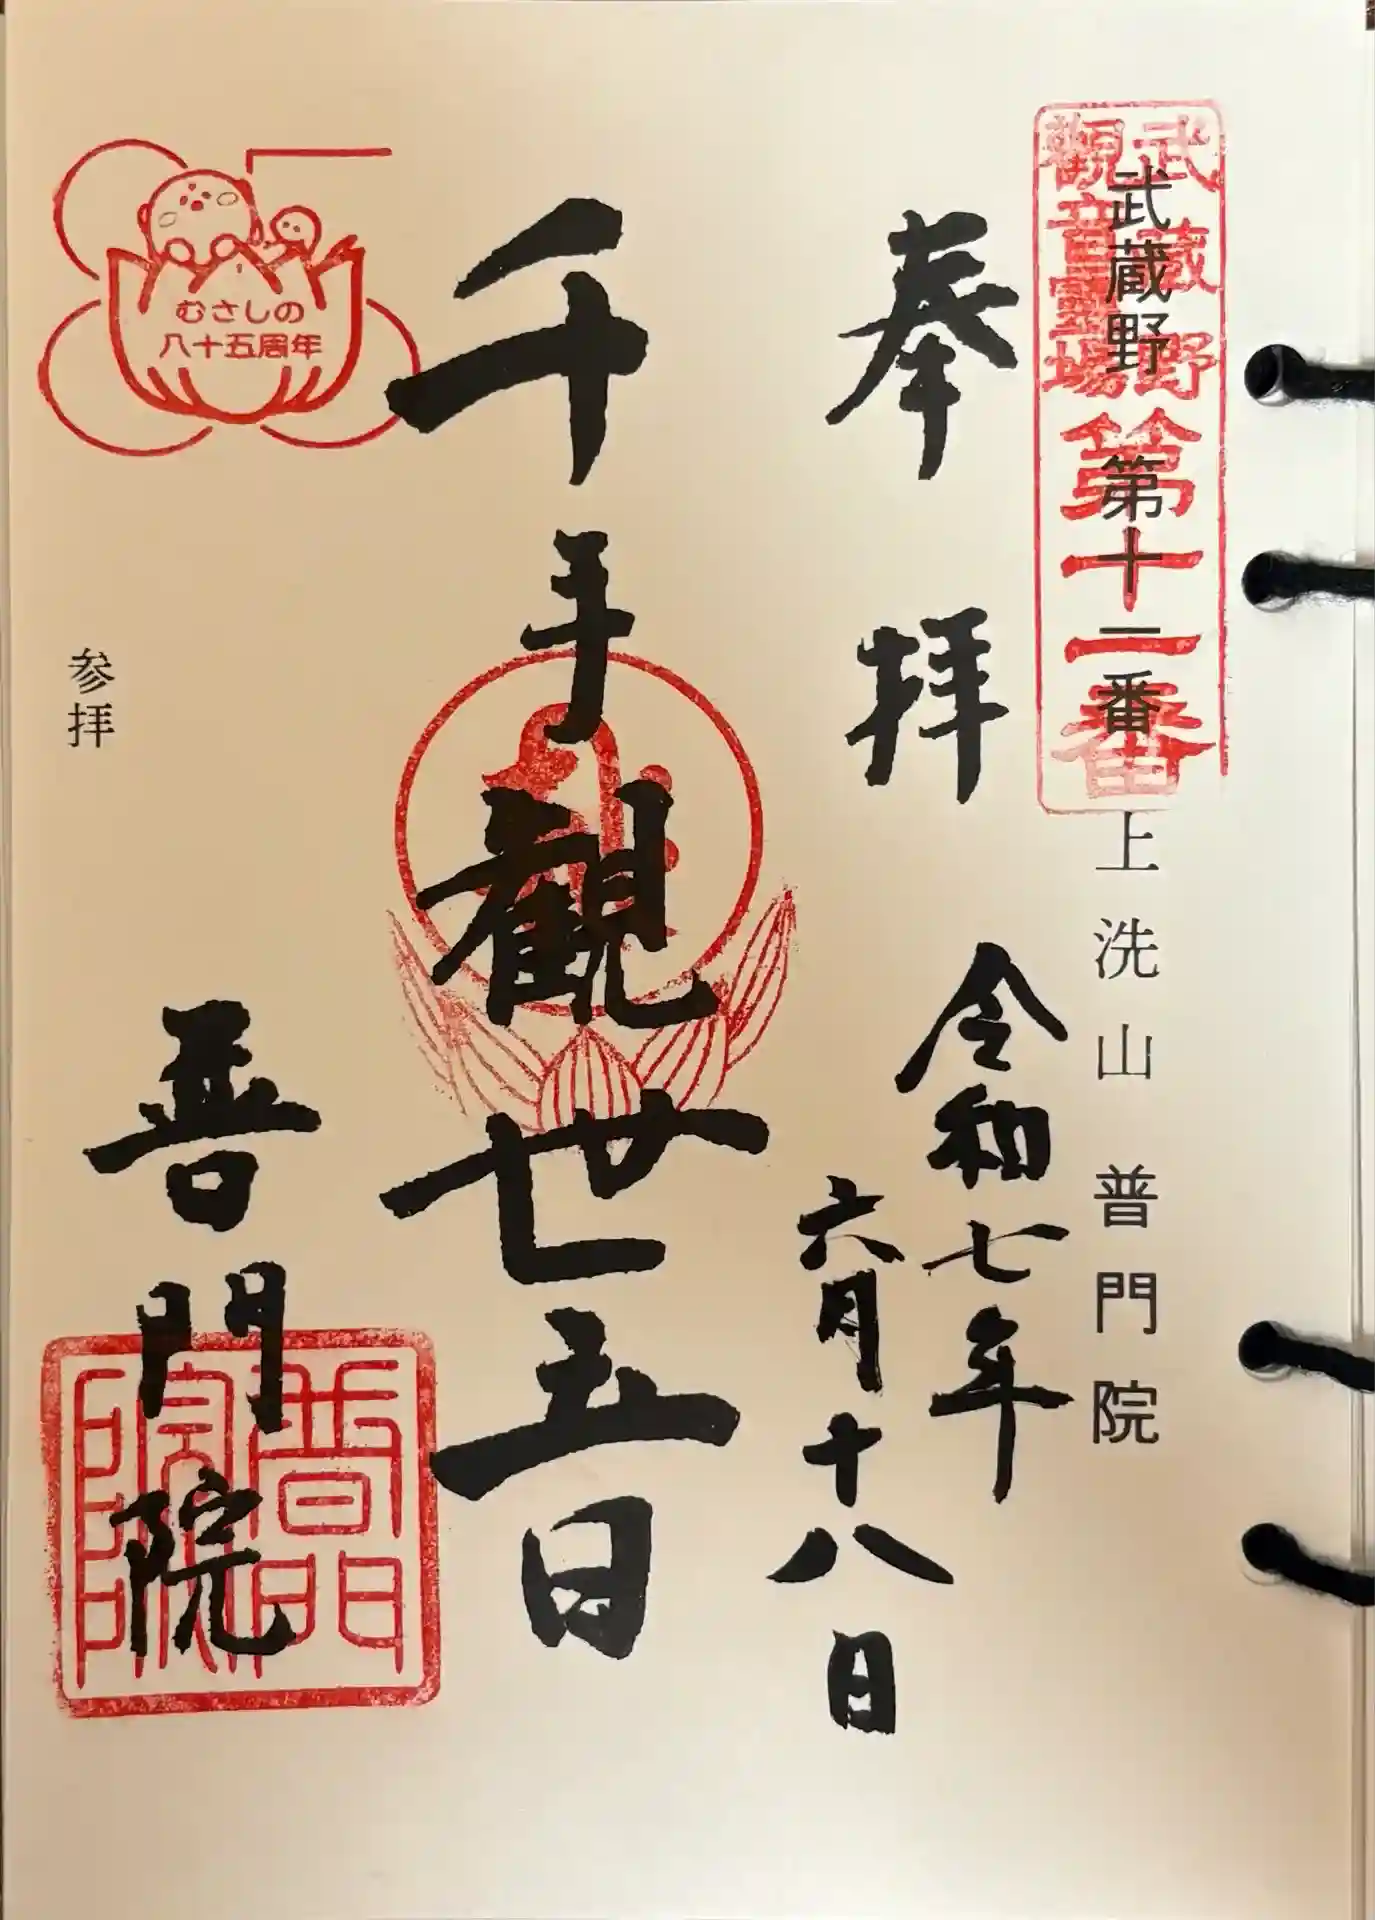 武蔵野
觀音霊場
第十一番
武蔵野 第十一番 上洗山 普門院
奉拝
令和七年
六月十八日
千手観世音
むさしの
八十五周年
参拝
普門院
普門
院印